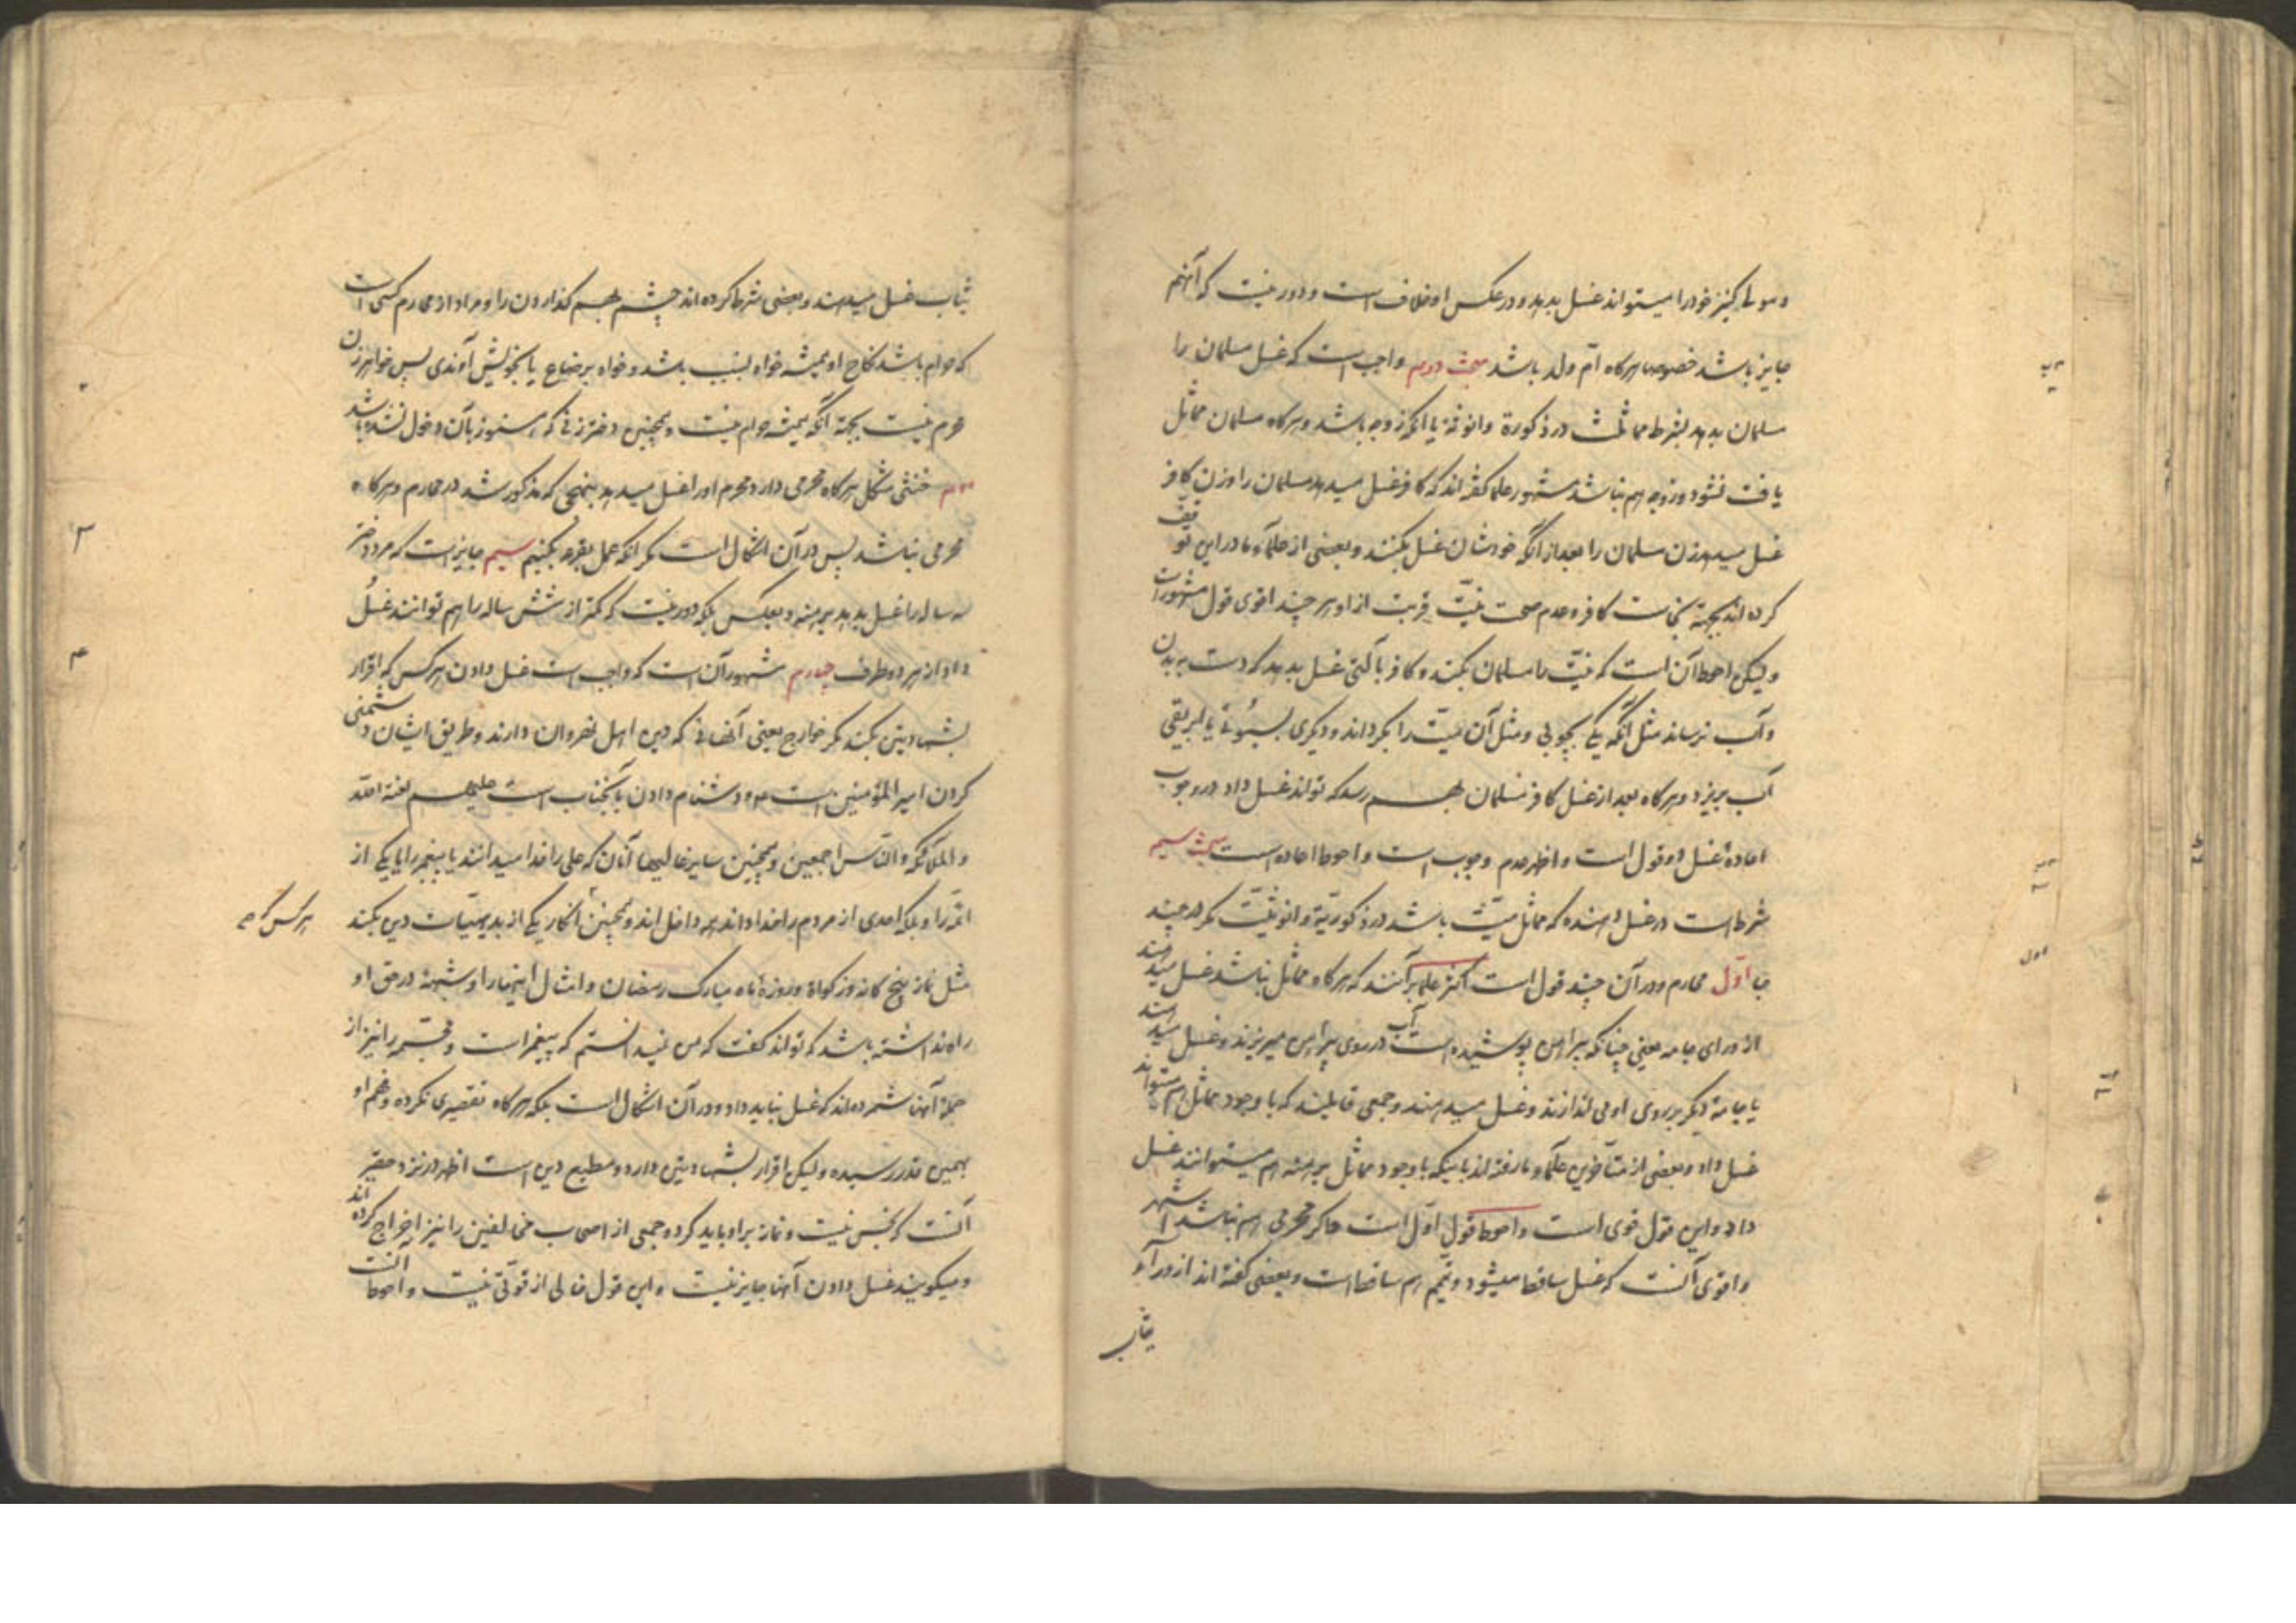 و مولی کنیز خود را میتواند غسل بدهد و در عکس او خلاف است و دور نیست که آنهم
جایز باشد خصوصا هرگاه امّ ولد باشد مبحث دویم واجب است که غسل مسلمان را
مسلمان بدهد بشرط مماثلت در ذکورة و انوثة یا آنکه زوجه باشد و هرگاه مسلمان مماثل
یافت نشود و زوجه هم نباشد مشهور علما گفته‌اند که کافر غسل میدهد مسلمان را و زن کافر
غسل میدهد زن مسلمان را بعد از آنکه خودشان غسل بکنند و بعضی از علماء ما در این توقف
کرده‌اند بجهة نجاست کافر و عدم صحت نیّت قربت از او هر چند اقوی قول مشهور است
و لیکن احوط آن است که نیّت را مسلمان بکند و کافر بآلتی غسل بدهد که دست به بدن
و آب نرساند مثل آنکه یکی بچوبی و مثل آن میّت را بگرداند و دیگری بسبوئی یا ابریقی
آب بریزد و هرگاه بعد از غسل کافر مسلمان بهم رسد که تواند غسل داد در وجوب
اعادهٔ غسل دو قول است و اظهر عدم وجوب است و احوط اعاده است مبحث سیم
شرط است در غسل دهنده که مماثل میّت باشد در ذکوریّة و انوثیّت مگر در چند
جا اوّل محارم و در آن چند قول است اکثر علما برآنند که هرگاه مماثل نباشد غسل میدهند
از ورای جامه یعنی چنانکه پیراهن پوشیده است آب در روی پیراهن میریزند و غسل میدهند
یا جامهٔ دیگر بر روی او می اندازند و غسل میدهند و جمعی قایلند که با وجود مماثل هم میتواند
غسل داد و بعضی از متأخرین علماء ما رفته‌اند باینکه با وجود مماثل برهنه هم میتوانند غسل
داد و این قول قوی است و احوط قول اوّل است و اگر محرمی هم نباشد اشهر
و اقوی آنست که غسل ساقط میشود و تیمّم هم ساقط است و بعضی گفته‌اند از وراء
ثیاب
ثیاب غسل میدهند و بعضی شرط کرده‌اند چشم بهم گذاردن را و مراد از محارم کسی است
که حرام باشد نکاح او همیشه خواه بنسب باشد و خواه برضاع یا بخویش آوندی پس خواهر زن
محرم نیست بجهة آنکه همیشه حرام نیست و همچنین دختر زنی که هنوز بآن دخول نشده باشد
دویم خنثی مشکل هرگاه محرمی دارد محرم او را غسل میدهد بنهجی که مذکور شد در محارم و هرگاه
محرمی نباشد پس در آن اشکال است مگر آنکه عمل بقرعه بکنیم سیم جایز است که مرد دختر
سه ساله را غسل بدهد برهنه و بعکس بلکه دور نیست که کمتر از شش ساله را هم توانند غسل
داد از هر دو طرف چهارم مشهور آن است که واجب است غسل دادن هر کس که اقرار
بشهادتین بکند مگر خوارج یعنی آنهائی که دین اهل نهروان دارند و طریق ایشان دشمنی
کردن امیر المؤمنین است و دشنام دادن بآنجناب است علیهم لعنة الله
و الملائکة و الناس اجمعین و همچنین سایر غالیها آنان که علی را خدا میدانند یا پیغمبر را یا یکی از
ائمّه را و بلکه احدی از مردم را خدا دانند همه داخل‌اند و همچنین انکار یکی از بدیهیّات دین بکند
هر کس که
مثل نماز پنج گانه و زکواة و روزهٔ ماه مبارک رمضان و امثال اینها را و شبهة در حق او
راه نداشته باشد که تواند گفت که من نمیدانستم که پیغمبر است و مجسّمه را نیز از
جملهٔ آنها شمرده‌اند که غسل نباید داد و در آن اشکال است بلکه هرگاه تقصیری نکرده و فهم او
بهمین قدر رسیده و لیکن اقرار بشهادتین دارد و مطیع دین است اظهر در نزد حقیر
آنست که نجس نیست و نماز بر او باید کرد و جمعی از اصحاب مخالفین را نیز اخراج کرده‌اند
و میگویند غسل دادن آنها جایز نیست و این قول خالی از قوّتی نیست و احوط آنست